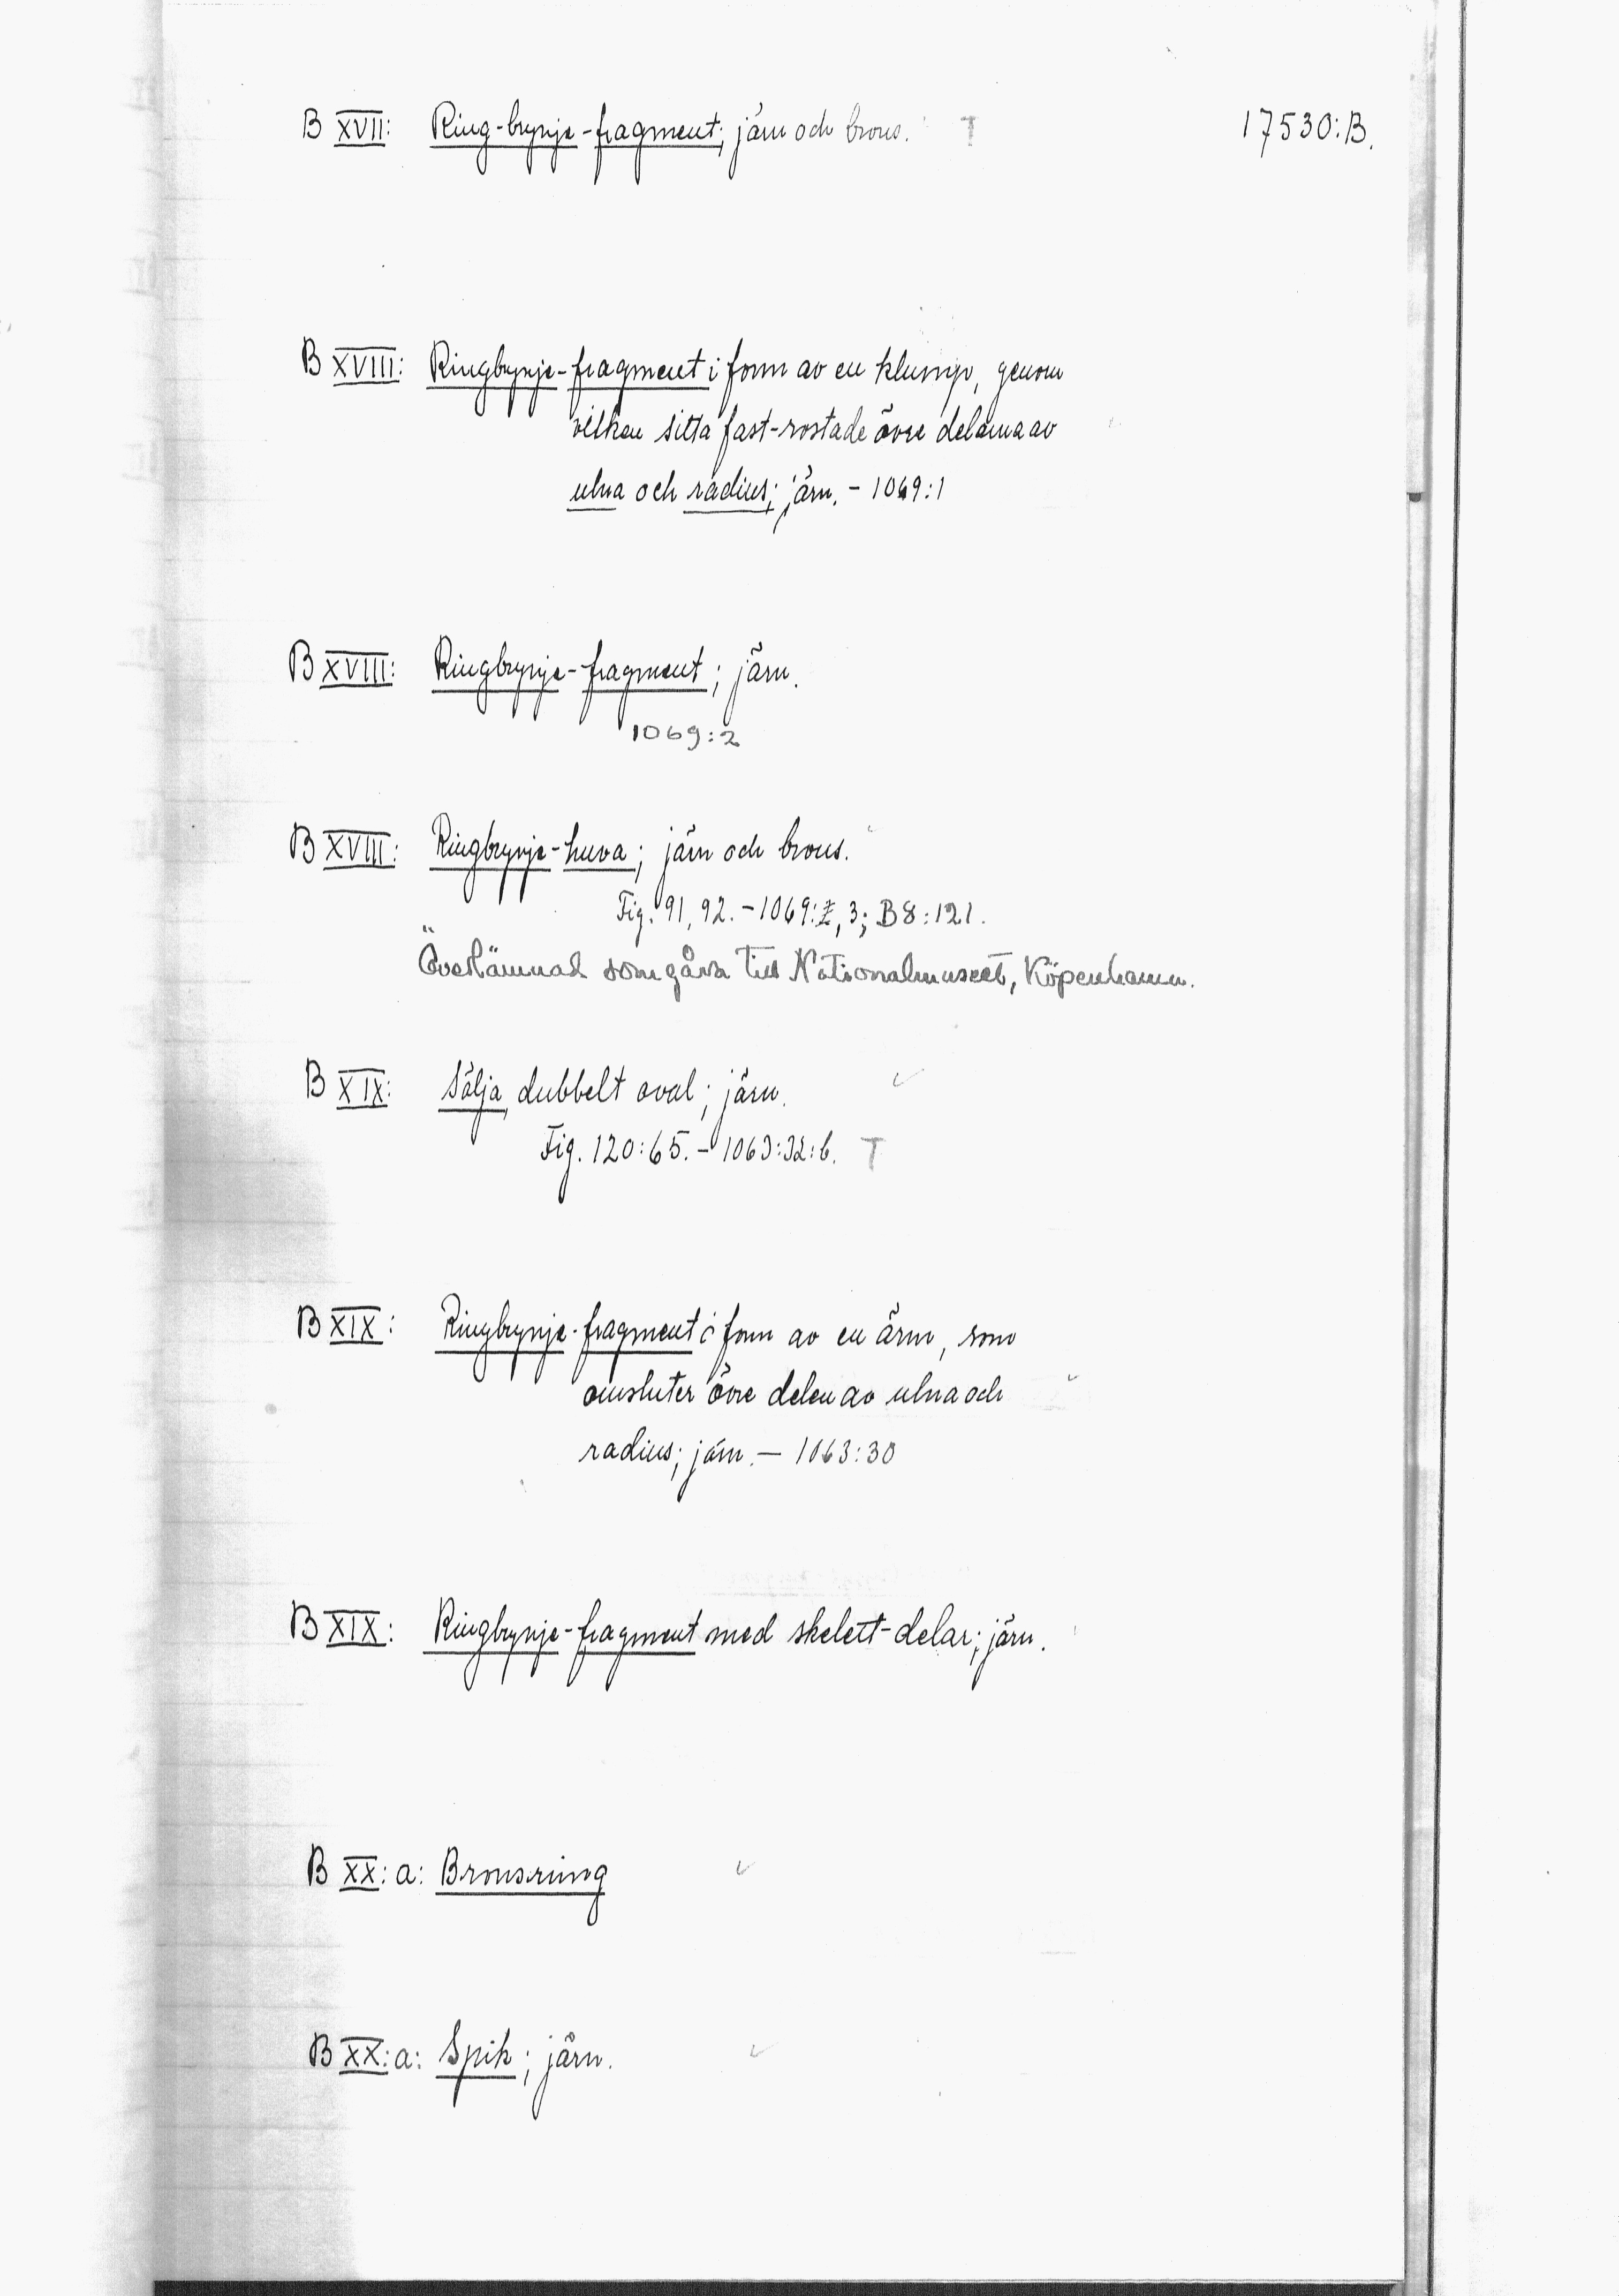 17530:B.
B XVII: Ring-brynje-fragment; järn och brons. T
B XVIII: Ringbrynje-fragment i form av en klump, genom
vilken sitta fast-rostade övre delarna av
ulna och radius; järn. - 1069:1
B XVIII: Ringbrynje-fragment; järn.
1069:2
B XVIII: Ringbrynje-huva; järn och brons.
Fig. 91, 92. - 1069:2, 3; B8:121.
Överlämnad som gåva till Nationalmuseet, Köpenhamn.
B XIX: Sölja, dubbelt oval; järn.
Fig. 120:65. - 1063:32:b. T
B XIX: Ringbrynje-fragment i form av en ärm, som
omsluter övre delen av ulna och
radius; järn. — 1063:30
B XIX: Ringbrynje-fragment med skelett-delar; järn.
B XX:a: Bronsring
B XX:a: Spik; järn.